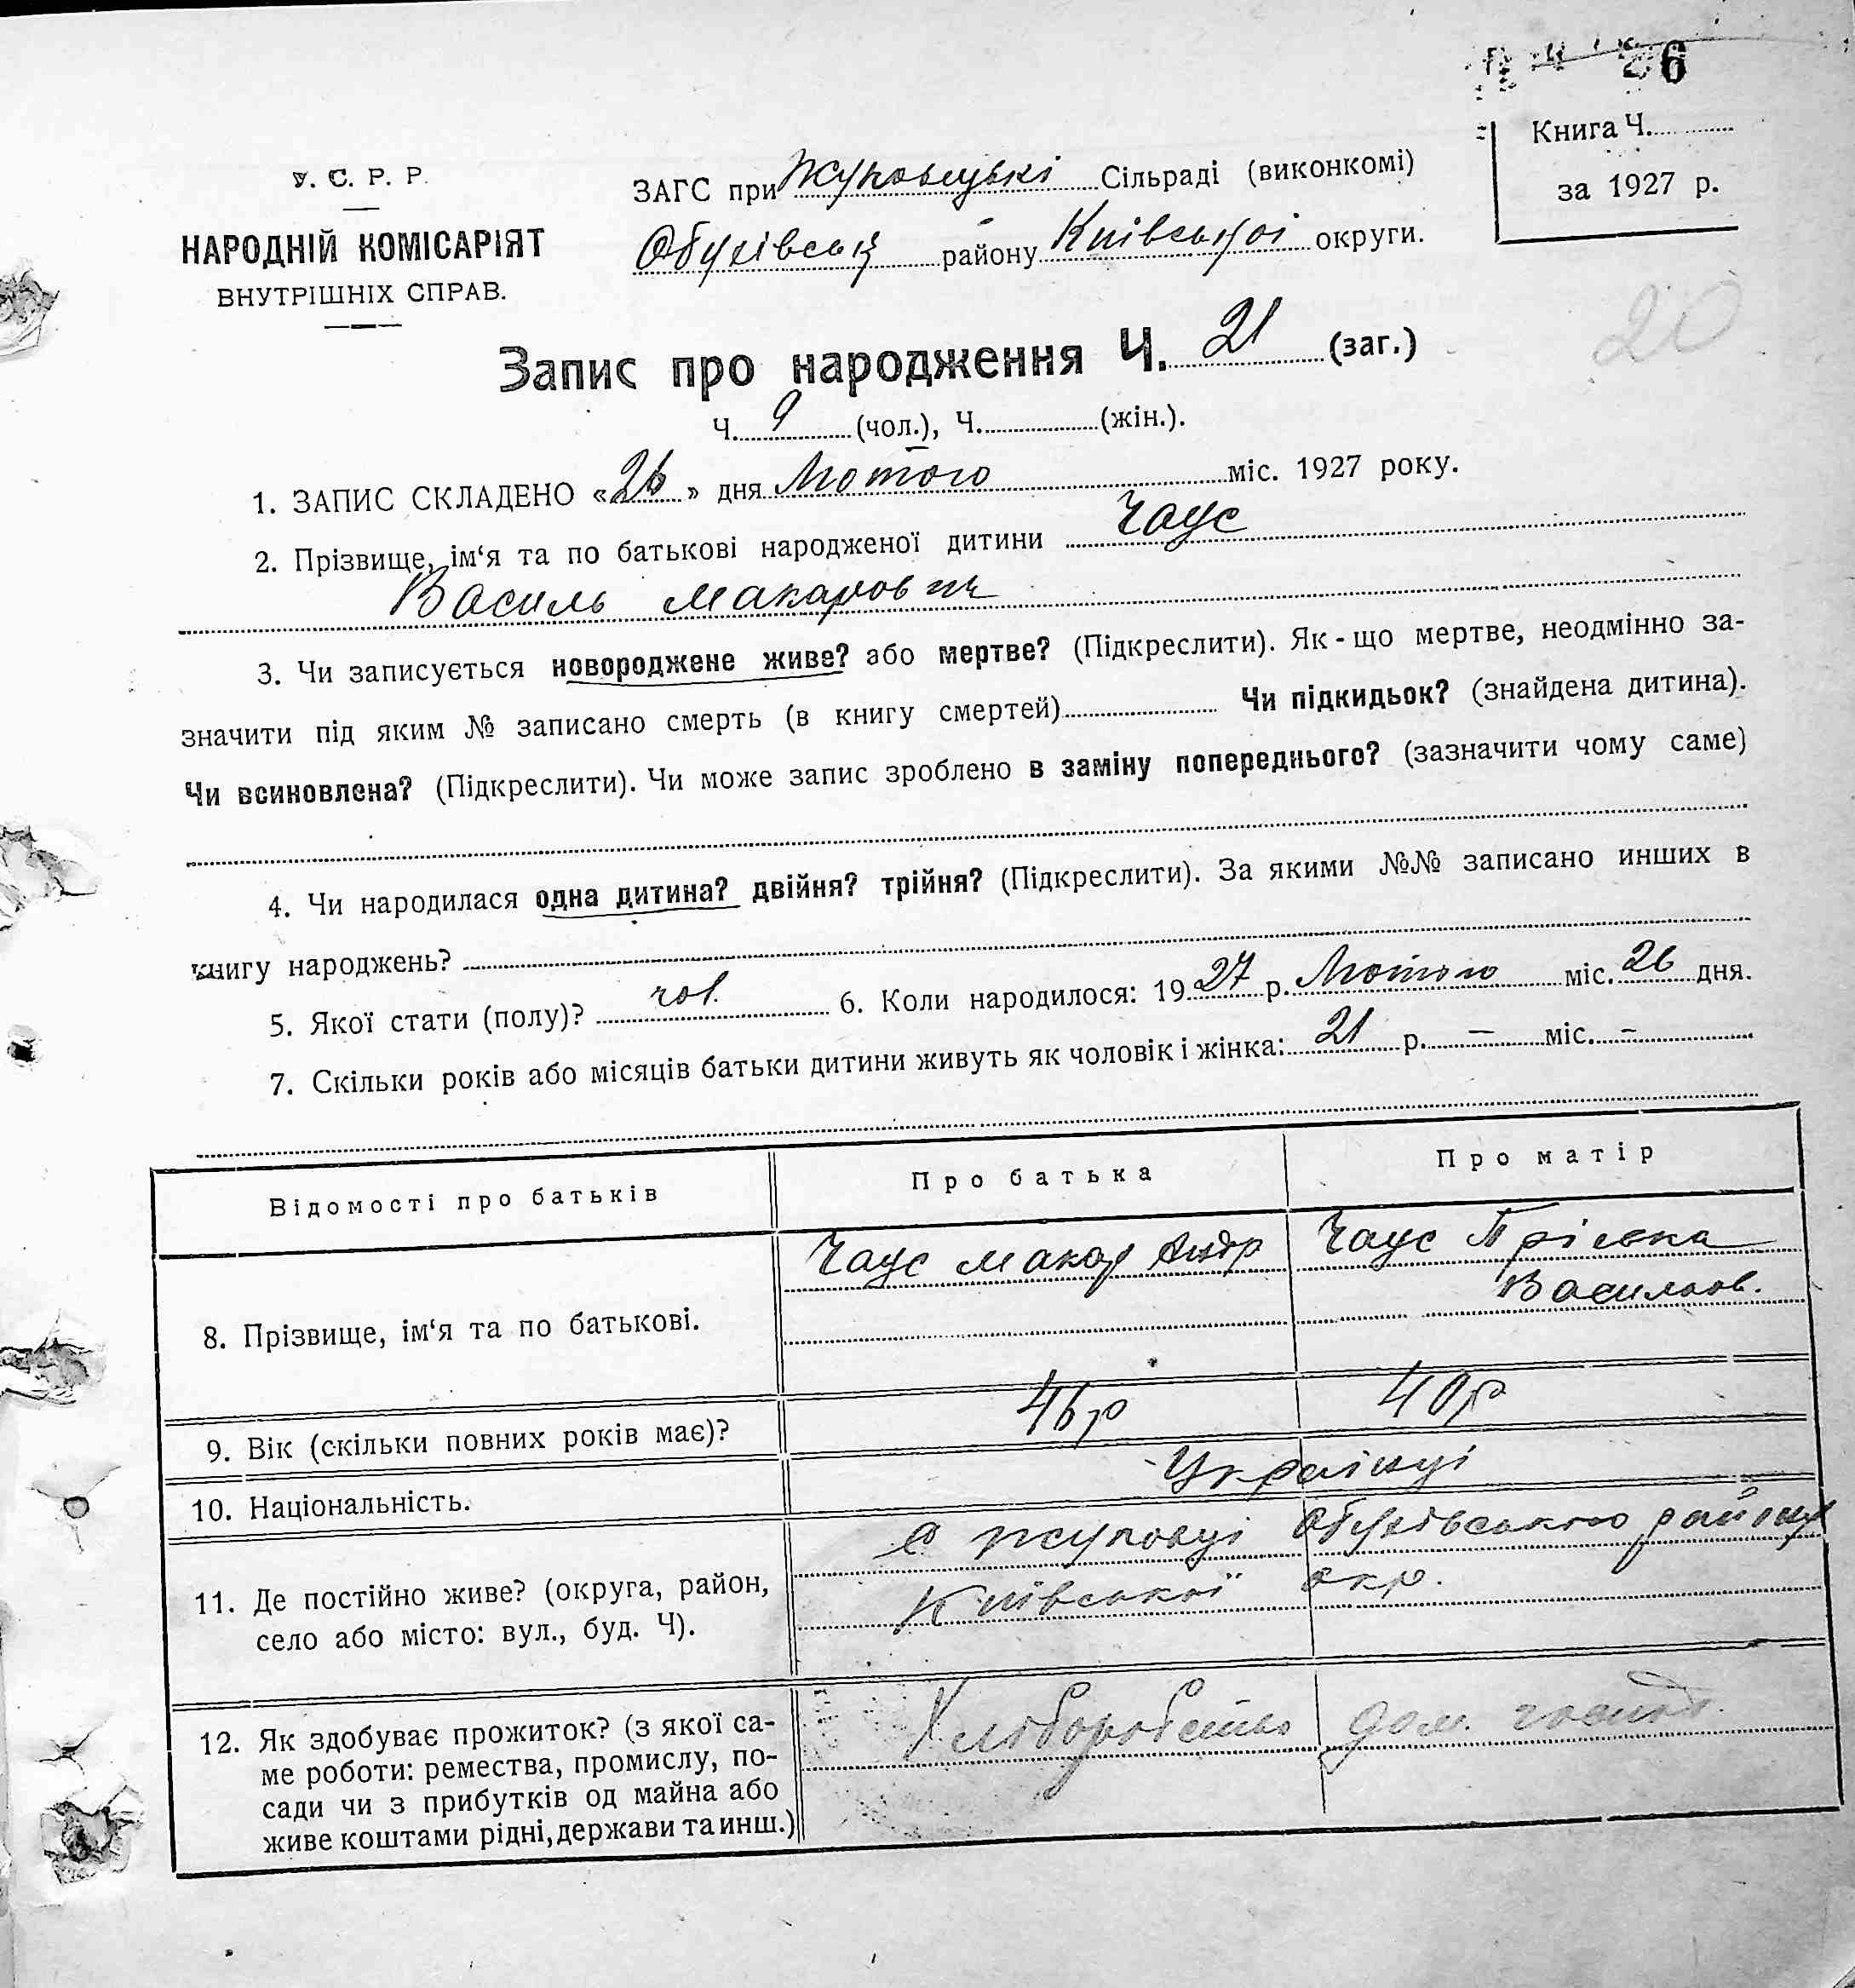 6
Книга Ч.
за 1927 р.
У. С. Р. Р.
НАРОДНІЙ КОМІСАРІЯТ
ВНУТРІШНІХ СПРАВ.
ЗАГС при Жуковецькі Сільраді (виконкомі)
Обухівськ району Київської округи.
20
Запис про народження Ч. 21 (заг.)
Ч. 9 (чол.), Ч. (жін.).
1. ЗАПИС СКЛАДЕНО «26» дня Лютого міс. 1927 року.
2. Прізвище, ім‘я та по батькові народженої дитини Чаус
Василь Макарович
3. Чи записується новороджене живе? або мертве? (Підкреслити). Як-що мертве, неодмінно за-
значити під яким № записано смерть (в книгу смертей) Чи підкидьок? (знайдена дитина).
Чи всиновлена? (Підкреслити). Чи може запис зроблено в заміну попереднього? (зазначити чому саме)
4. Чи народилася одна дитина? двійня? трійня? (Підкреслити). За якими №№ записано инших в
книгу народжень?
5. Якої стати (полу)? чол. 6. Коли народилося: 1927 р. Лютого міс. 26 дня.
7. Скільки років або місяців батьки дитини живуть як чоловік і жінка: 21 р. — міс. —
Відомості про батьків Про батька Про матір
8. Прізвище, ім‘я та по батькові. Чаус Макар Андр Чаус Пріська
Васильов.
9. Вік (скільки повних років має)? 46 р 40 р
10. Національність. Українці
11. Де постійно живе? (округа, район, с Жуковці Обухівського району
село або місто: вул., буд. Ч). Київської окр.
12. Як здобуває прожиток? (з якої са- Хліборобство дом. господ.
ме роботи: ремества, промислу, по-
сади чи з прибутків од майна або
живе коштами рідні, держави та инш.)